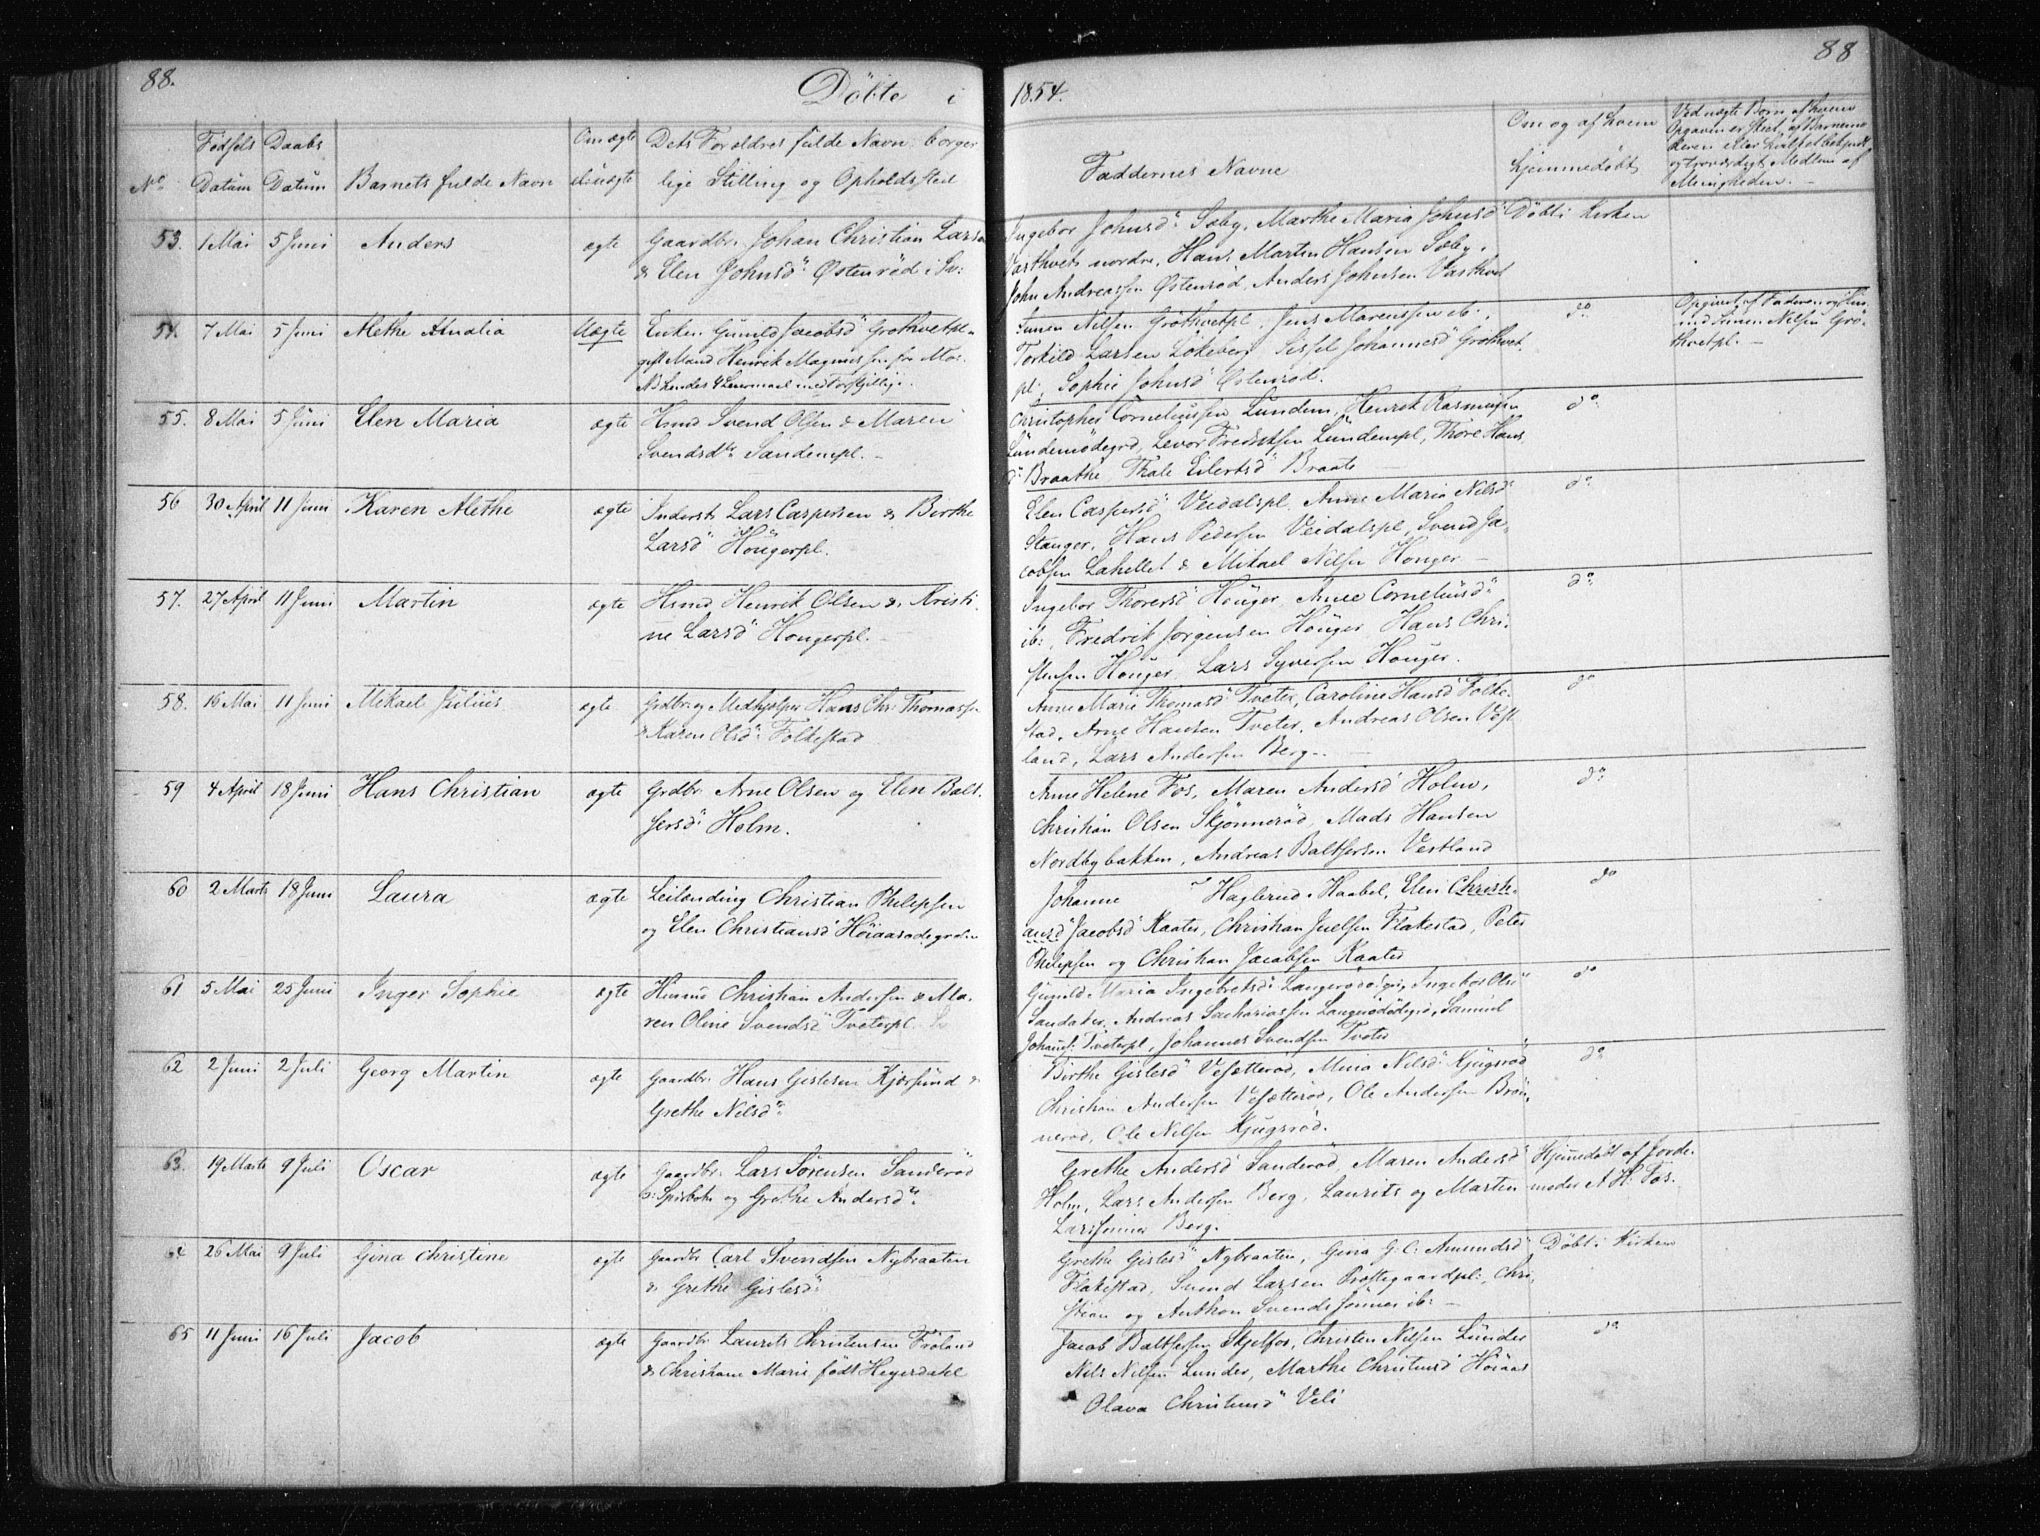 88.
Döbte i
1854.
88
No
Födsels Datum
Daabs Datum
Barnets fulde Navn
Om ægte el: uægte
Dets Forældres fulde Navn, borger
lige Stilling og Opholdssted
Faddernes Navne
Om og af hvem
hjemmedöbt
Ved uægte Børn af hvem
Opgaven er skeet, af Barnemo
deren eller
og troværdigt Medlem af
Menigheden.
53. 1 Mai 5 Juni Anders ægte Gaardbr. Johan Christian Larsen
& Elen Johnsd: Östenröd i Sv:
Ingebor Johnsd: Sæby, Marthe Maria Johnsd: Döbt i Kirken
Vasthvet nordre, Hans Martin Hansen Sæby,
John Andreassen Östenröd, Anders Johnsen Vasthvet
54. 7 Mai 5 Juni Alethe Amalia Uægte Enken Gunild Jacobsd: Grothvetpl.
gift Mand Henrik Magnussen fra Mos.
NB hendes 4 Leiermaal med Forskjellige.
Simen Nilsen Gröthvetpl. Jens Marenssen ib:, do
Torkild Larsen Lökeberg, Sissel Johannesd: Grothvet
pl., Sophie Johnsd: Östenröd.
Opgivet af Faderen
Simen Nilsen Grö-
thvetpl.
55. 8 Mai 5 Juni Elen Maria ægte Hmd Svend Olsen & Maren
Svendsdtr Sandempl.
Christopher Corneliussen Lundem, Henrik Rasmussen do
Lundemödegrd, Levor Fredriksen Lundempl, Thore Hans
d: Braathe Thale Eilertsd: Braate
56 30 April 11 Juni Karen Alethe ægte Inderst Lars Caspersen & Birthe
Larsd: Höugerpl.
Elen Caspersd: Veidalspl. Anne Maria Nilsd: do
Stanger, Hans Pedersen Veidalspl, Svend Ja-
cobsen Lahellet & Mikael Nilsen Houger
57. 27 April 11 Juni Martin ægte Hmd Henrik Olsen & Kristi-
ne Larsd: Hougerpl.
Ingebor Thorersd: Höuger, Anne Corneliusd: do
ib:, Fredrik Jörgensen Höuger Hans Chri-
stensen Höuger, Lars Syversen Houger.
58. 16 Mai 11 Juni Mikael Julius ægte Grdbr. og Medhjelper Hans Chr: Thomassen
& Karen Olsd: Folkestad
Anne Marie Thomasd: Tveter, Caroline Hansd: Folke- do
stad, Arne Hansen Tveter, Andreas Olsen Vest
land, Lars Andersen Berg.
59 4 April 18 Juni Hans Christian ægte Grdbr Arne Olsen og Elen Balt-
sersd: Holm.
Anne Helene Fos, Maren Andersd: Holm, do
Christian Olsen Skjönneröd, Mads Hansen
Nordbybakken, Andreas Baltsersen Vestland
60 2 Marts 18 Juni Laura ægte Leilending Christian Philipsen
og Elen Christiansd: Höiaasödegrden
Johanne Haglerud, Kaabel, Elen Christi- do
ansd: Jacobsd: Kaater, Christian Juelsen Flakestad, Peter
Philipsen og Christian Jacobsen Kaater
61 5 Mai 25 Juni Inger Sophie ægte Husmd Christian Andersen & Ma-
ren Oline Svendsd: Tveterpl.
Gunild Maria Ingebretsd: Langerödödegrd, Ingebor Olsd: do
Sandaker, Andreas Sachariassen Langerödödegrd, Samuel
Johans: Tveterpl, Johannes Svendsen Tveter
62 2 Juni 2 Juli Georg Martin ægte Gaardbr. Hans Gislesen Kjærsund &
Grethe Nilsdtr
Birthe Gislesd: Vesætteröd, Mina Nilsd: Kjugsröd do
Christian Andersen Vesætteröd, Ole Andersen Brön-
neröd, Ole Nilsen Kjugsröd.
63. 19 Marts 9 Juli Oscar ægte Gaardbr. Lars Sörensen Sanderöd
og Grethe Andersdtr
Grethe Andersd: Sanderöd, Maren Andersd: Hjemedöbt af Jorde
Holm, Lars Andersen Berg, Laurits og Martin moder A. H. Fos.
Larssönner Berg.
64 26 Mai 9 Juli Gina Christine ægte Gaardbr Carl Svendsen Nybraaten
& Grethe Gislesd:
Grethe Gislesd: Nybraaten, Gina G: C: Amundsd: Döbt i Kirken
Flakestad, Svend Larsen Præstegaardpl:, Chri-
stian og Anthon Svends Sönner ib:
65 11 Juni 16 Juli Jacob ægte Gaardbr Laurits Christensen Fröland
& Christiane Marie född Heyerdahl
Jacob Baltsersen Skjelfos, Christen Nilsen Lunder do
Nils Nilsen Lunder, Marthe Christensd: Höiaas
Olava Christensd: Veli